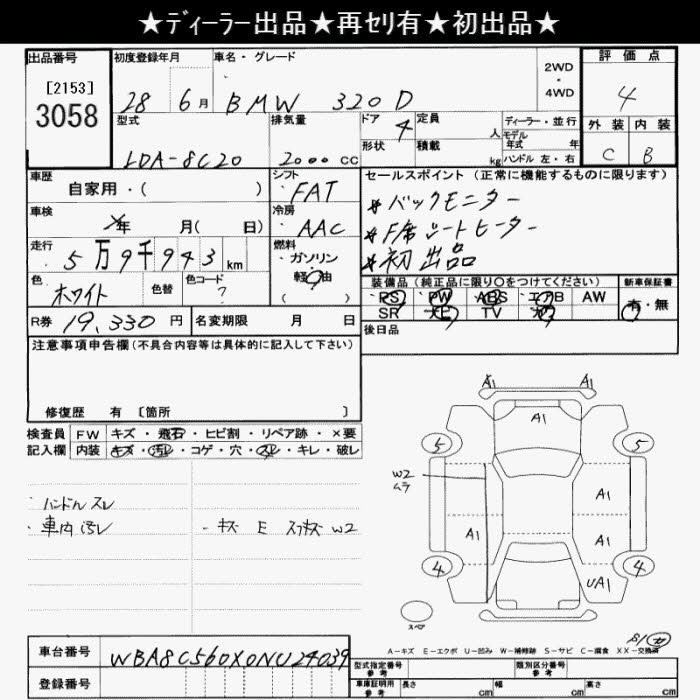 ★ディーラー出品★再セリ有★初出品★
出品番号 初度登録年月 車名・グレード 2WD・4WD 評価点
[2153]
3058
28 6月 BMW 320D 4
型式 排気量 ドア 4 定員 人 ディーラー・並行 外装 内装
モデル年式 年
LDA-8C20 2000cc 形状 積載 kg ハンドル 左・右 C B
車歴 シフト セールスポイント (正常に機能するものに限ります)
自家用・( ) FAT *バックモニター
車検 年 月( 日) 冷房 AAC *F席シートヒーター
走行 5万9千943km 燃料 ガソリン 軽油 ( ) *初出品
色 ホワイト 色替 色コード ? 装備品 (純正品に限り○をつけてください) 新車保証書
PS PW ABS エアB AW 有・無
SR ナビ TV
R券 19,330円 名変期限 月 日 後日品
注意事項申告欄(不具合内容等は具体的に記入して下さい)
修復歴 有 [箇所 ]
検査員 FW キズ・飛石・ヒビ割・リペア跡・×要
記入欄 内装 キズ・汚レ・コゲ・穴・スレ・キレ・破レ
・ハンドルスレ
・車内汚レ ・キズ E スフキズ W2
A1 A1
A1
5 5
W2
ムラ
A1
A1 A1
4 4
UA1
スペア
A-キズ E-エクボ U-凹み W-補修跡 S-サビ C-腐食 XX-交換済
車台番号 WBA8C560X0NU24039
登録番号
型式指定番号 参考 類別区分番号 参考
車庫証明用 参考 長さ cm 幅 cm 高さ cm